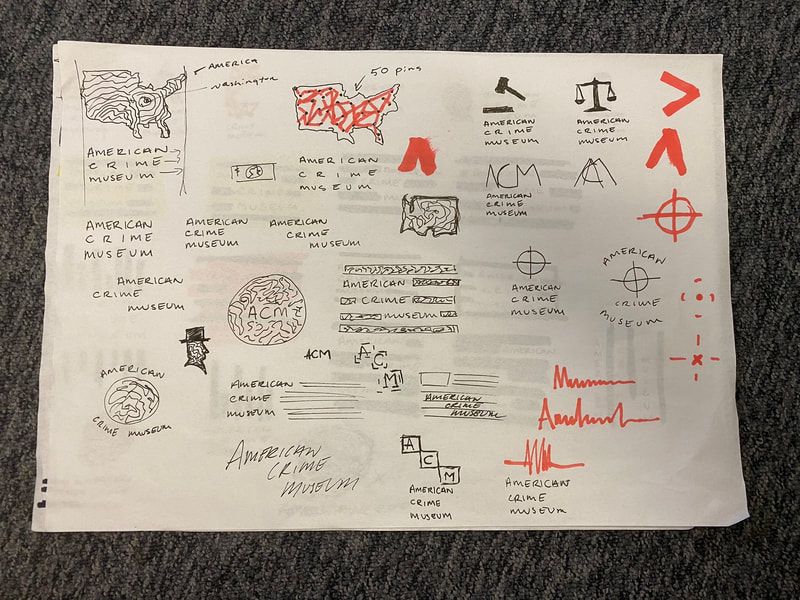 AMERICA
Washington
AMERICAN
CRIME
MUSEUM
50 pins
AMERICAN
CRIME
MUSEUM
AMERICAN
CRIME
MUSEUM
AMERICAN
CRIME
MUSEUM
ACM
AMERICAN
CRIME
MUSEUM
A
AMERICAN
CRIME
MUSEUM
AMERICAN
CRIME
MUSEUM
AMERICAN
CRIME
MUSEUM
AMERICAN
CRIME
MUSEUM
ACM
AMERICAN
CRIME
MUSEUM
AMERICAN
CRIME
MUSEUM
AMERICAN
CRIME
MUSEUM
ACM
A
C
M
AMERICAN
CRIME MUSEUM
AMERICAN
CRIME
MUSEUM
AMERICAN
CRIME
MUSEUM
AMERICAN
CRIME
MUSEUM
A
C
M
AMERICAN
CRIME
MUSEUM
AMERICAN
CRIME
MUSEUM